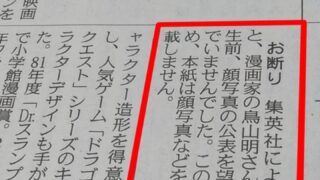 お断り 集英社によ
と、漫画家の鳥山明さん
生前、顔写真の公表を望
でいませんでした。この
め、本紙は顔写真などを
載しません。
ャラクター造形を得意
し、人気ゲーム「ドラゴ
クエスト」シリーズのキ
ラクターデザインも手が
た。81年度「Dr.スランプ
で小学館漫画賞。
映画